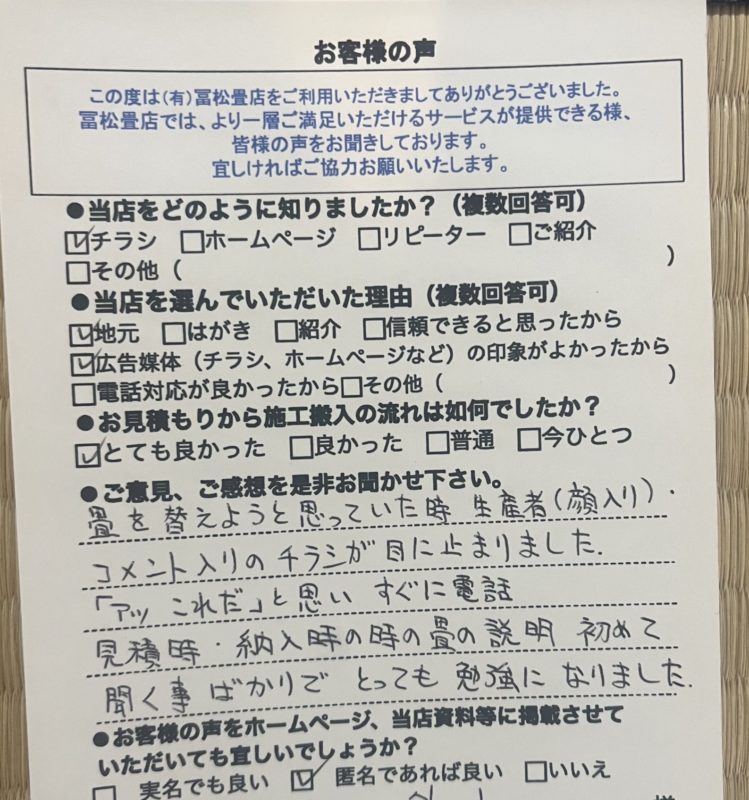 お客様の声
この度は(有)冨松畳店をご利用いただきましてありがとうございました。
冨松畳店では、より一層ご満足いただけるサービスが提供できる様、
皆様の声をお聞きしております。
宜しければご協力お願いいたします。
●当店をどのように知りましたか？（複数回答可）
☑チラシ □ホームページ □リピーター □ご紹介
□その他（ ）
●当店を選んでいただいた理由（複数回答可）
☑地元 □はがき □紹介 □信頼できると思ったから
☑広告媒体（チラシ、ホームページなど）の印象がよかったから
□電話対応が良かったから□その他（ ）
●お見積もりから施工搬入の流れは如何でしたか？
☑とても良かった □良かった □普通 □今ひとつ
●ご意見、ご感想を是非お聞かせ下さい。
畳を替えようと思っていた時 生産者(顔入り)．
コメント入りのチラシが目に止まりました．
「アッ これだ」と思い すぐに電話
見積時・納入時の時の畳の説明 初めて
聞く事ばかりで とっても 勉強に なりました．
●お客様の声をホームページ、当店資料等に掲載させて
いただいても宜しいでしょうか？
□ 実名でも良い ☑ 匿名であれば良い □いいえ
様